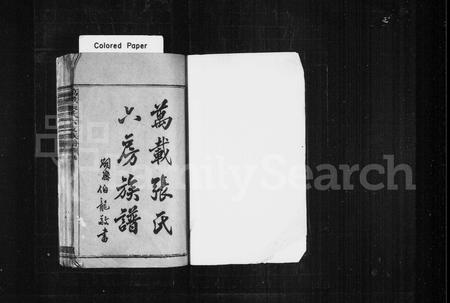 Colored Paper
萬載張氏
六房族譜
伯龍敬書
FamilySearch